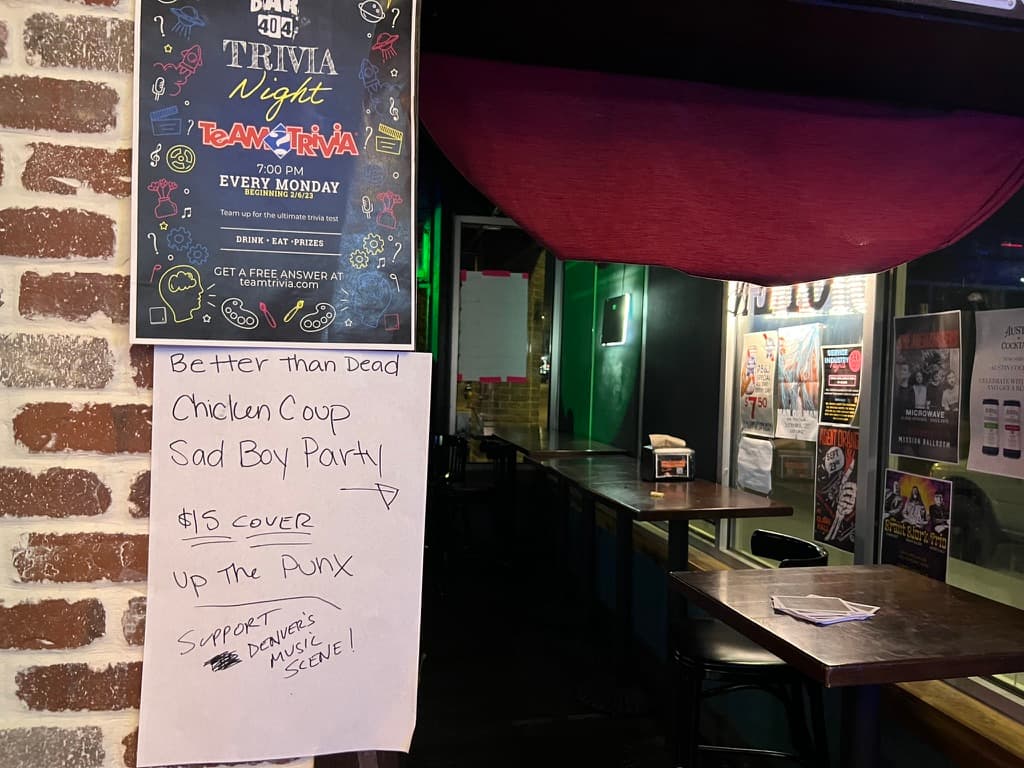 BAR
404
TRIVIA
Night
TEAM TRIVIA
7:00 PM
EVERY MONDAY
BEGINNING 2/6/23
Team up for the ultimate trivia test
DRINK • EAT • PRIZES
GET A FREE ANSWER AT
teamtrivia.com
Better Than Dead
Chicken Coup
Sad Boy Party
$15 COVER
UP THE PUNX
SUPPORT
DENVER'S
MUSIC
SCENE!
$7.50
SERVICE
INDUSTRY
AGENT ORANGE
SEPT
MICROWAVE
MISSION BALLROOM
AUSTIN
COCKTA
AUSTIN COCK
CELEBRATE WIT
AND GET A